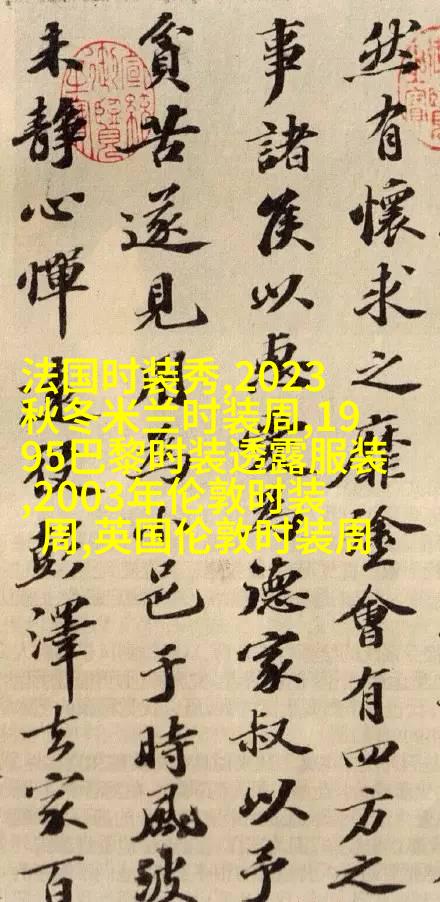 然有懷求之靡塗會有四方之
事諸侯以惠愛為德家叔以予
貧苦遂見用為小邑于時風波
未静心憚遠役彭澤去家百
法国时装秀,2023
秋冬米兰时装周,19
95巴黎时装透露服装
,2003年伦敦时装
周,英国伦敦时装周